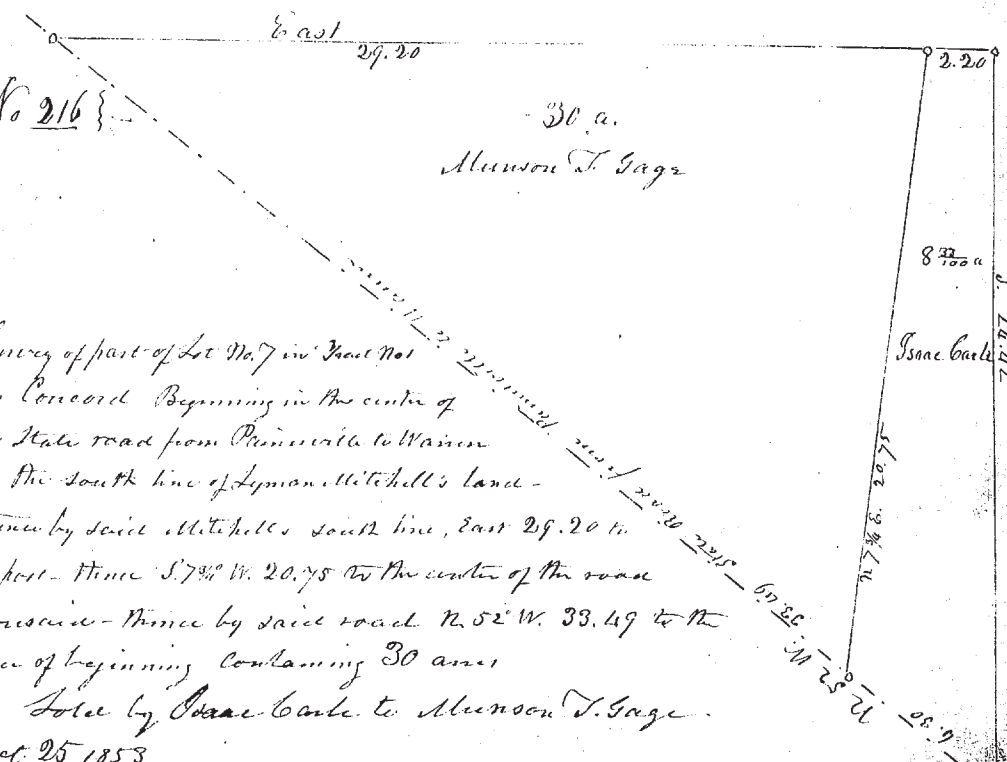 East
29.20
2.20
No 216
30 a.
Munson T. Gage
8 33/100 a
Isaac Carle
S. 24.42
N 7¾ E 20.75
State Road from Painesville to Warren
N 52 W. 33.49
6.30
of part of Lot No. 7 in Tract No 1
Concord Beginning in the center of
State road from Painesville to Warren
the south line of Lyman Mitchell's land-
by said Mitchells south line, East 29.20 to
post- thence S. 7¾° W. 20.75 to the center of the road
- thence by said road N 52° W. 33.49 to the
of beginning containing 30 acres
Sold by Isaac Carle to Munson T. Gage.
25 1853